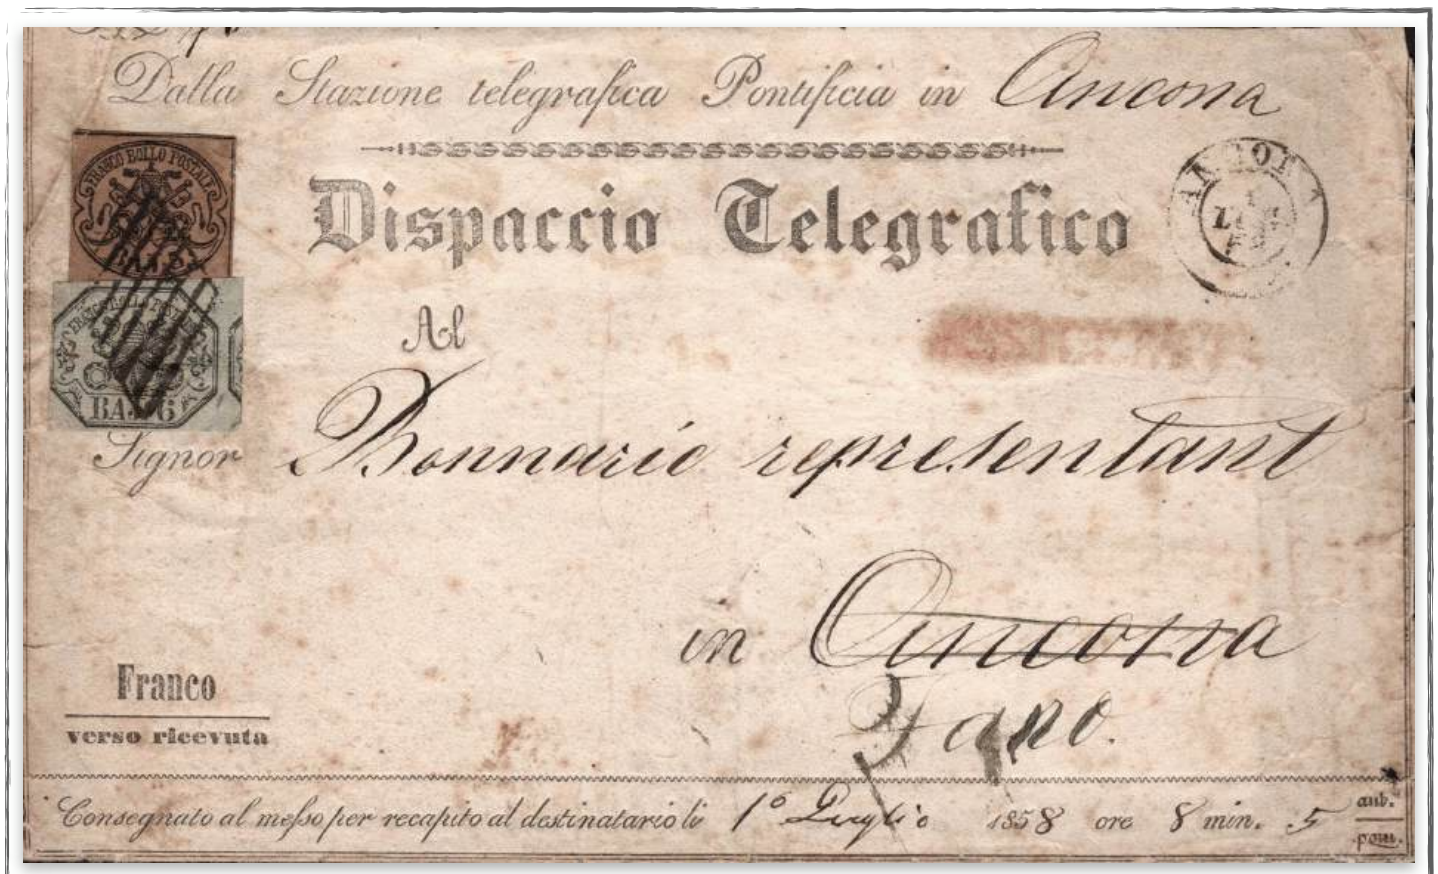 Dalla Stazione telegrafica Pontificia in Ancona
Dispaccio Telegrafico
FRANCO BOLLO POSTALE
BAJ 5
BAJ 6
Al
Signor Bonnarie representant
in Ancona
Fano.
Franco
verso ricevuta
Consegnato al messo per recapito al destinatario li 1º Luglio 1858 ore 8 min. 5 ant.
pom.